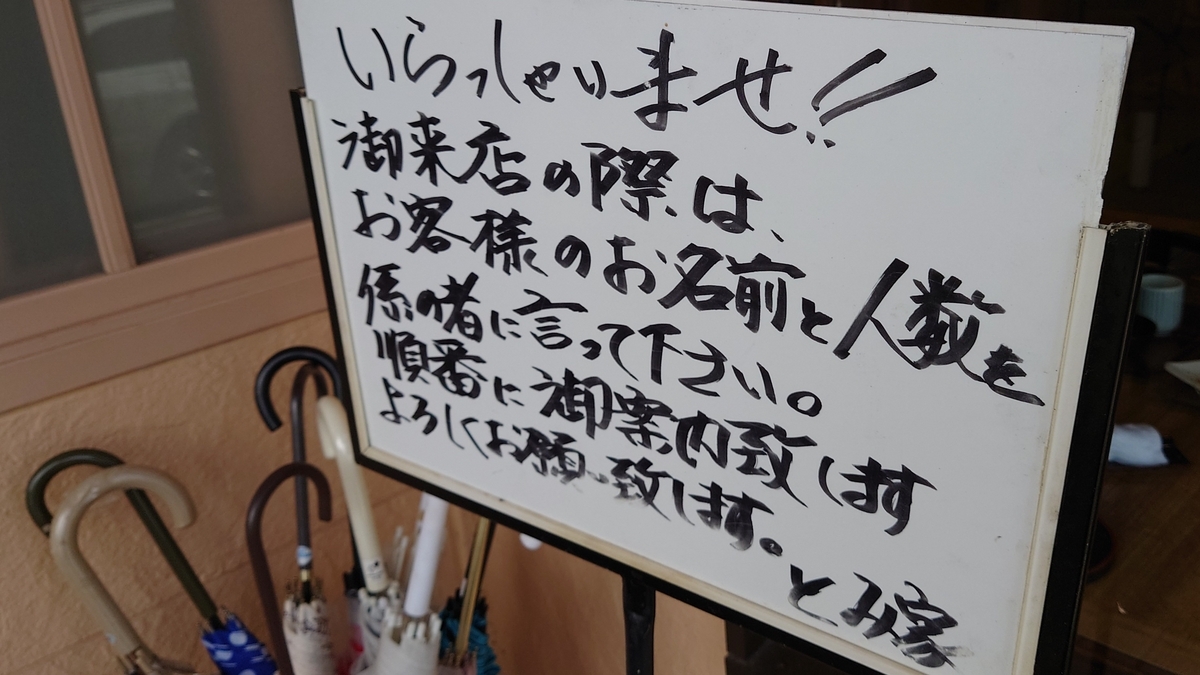 いらっしゃいませ!!
御来店の際は、
お客様のお名前と人数を
係の者に言って下さい。
順番に御案内致します
よろしくお願い致します。
とみ家